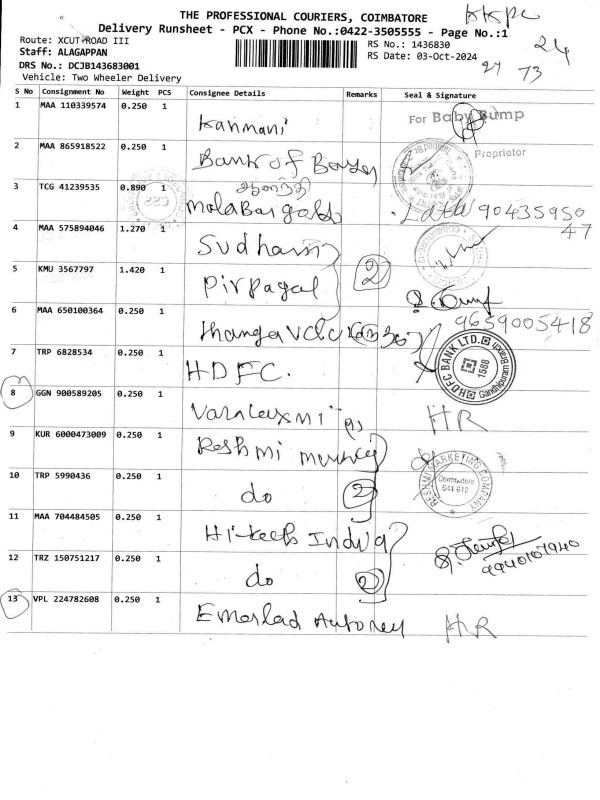 THE PROFESSIONAL COURIERS, COIMBATORE
KKPC
Delivery Runsheet - PCX - Phone No.:0422-3505555 - Page No.:1
Route: XCUT ROAD III
RS No.: 1436830
24
Staff: ALAGAPPAN
RS Date: 03-Oct-2024
DRS No.: DCJB143683001
27 73
Vehicle: Two Wheeler Delivery
S No Consignment No Weight PCS Consignee Details Remarks Seal & Signature
1 MAA 110339574 0.250 1 Kanmani For Baby Bump
Proprietor
2 MAA 865918522 0.250 1 Bank of
3 TCG 41239535 0.890 1 Malabar gold 90435950
47
4 MAA 575894046 1.270 1 Sudharm
5 KMU 3567797 1.420 1 Pirpagal 2
6 MAA 650100364 0.250 1 9659005418
7 TRP 6828534 0.250 1 HDFC. HDFC BANK LTD. 1588 Gandhipuram Branch
8 GGN 900589205 0.250 1 Varalaxmi HR
9 KUR 6000473009 0.250 1 Reshmi
RESHMI MARKETING COMPANY Coimbatore 641 012
10 TRP 5990436 0.250 1 do 2
11 MAA 704484505 0.250 1 Hi-tech India
12 TRZ 150751217 0.250 1 do 2 9940107940
13 VPL 224782608 0.250 1 HR